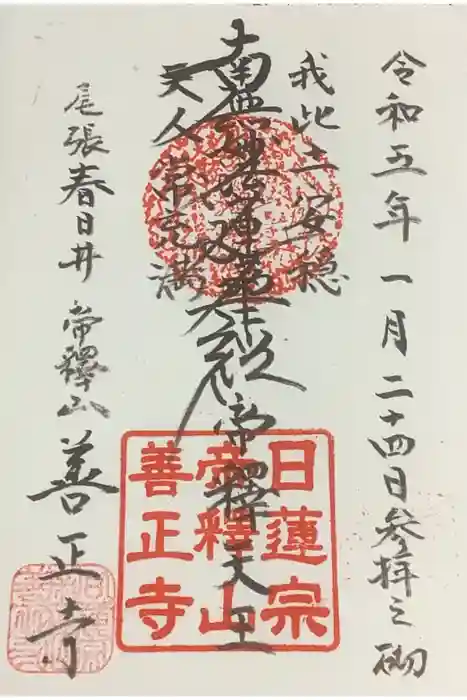 令和五年 一月 二十四日参拝之砌
我此土安穏
南無妙法蓮華経
帝釋天王
天人常充満
尾張春日井 帝釋山 善正寺
日蓮宗
帝釋山
善正寺